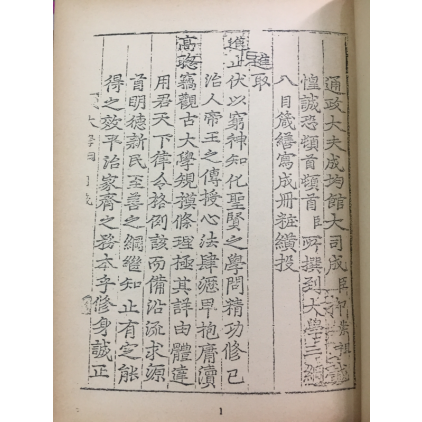 通政大夫成均館大司成臣朴崇祖誠
惶誠恐頓首頓首臣所撰到大學三綱
八目箴繕寫成冊粧䌙投
進取
進止伏以窮神知化聖賢之學問精功修己
治人帝王之傳授心法肆瀝卑抱庸瀆
高聰竊觀古大學規模條理極其詳由體達
用君天下律令格例該而備沿流求源
首明德新民至善之綱繼知止有定能
得之效平治家齊之務本乎修身誠正
1